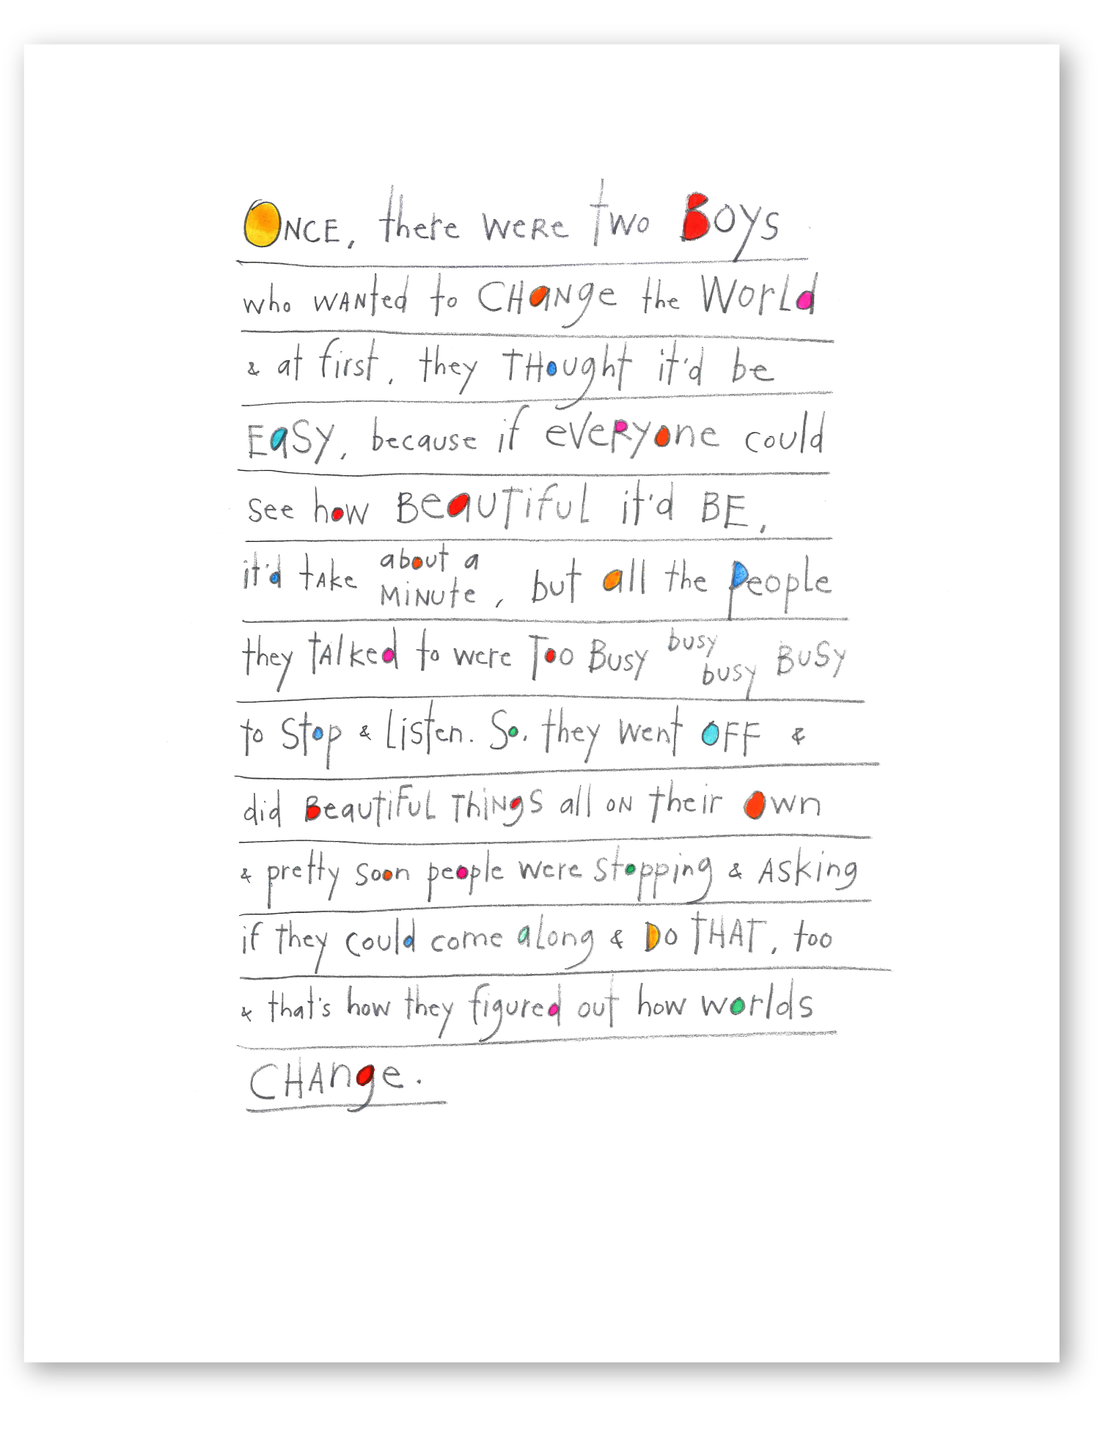 ONCE, there were two Boys
who wanted to CHaNge the World
& at first, they THought it'd be
EaSy, because if eVeRyone could
see how BeaUTiful it'd BE,
it'd take about a MiNute, but all the people
they talked to were Too Busy busy busy BuSy
to Stop & Listen. So, they went OFF &
did BeautiFuL ThiNgS all oN their Own
& pretty soon people were stopping & Asking
if they could come along & Do THAT, too
& that's how they figured out how worlds
CHAnge.